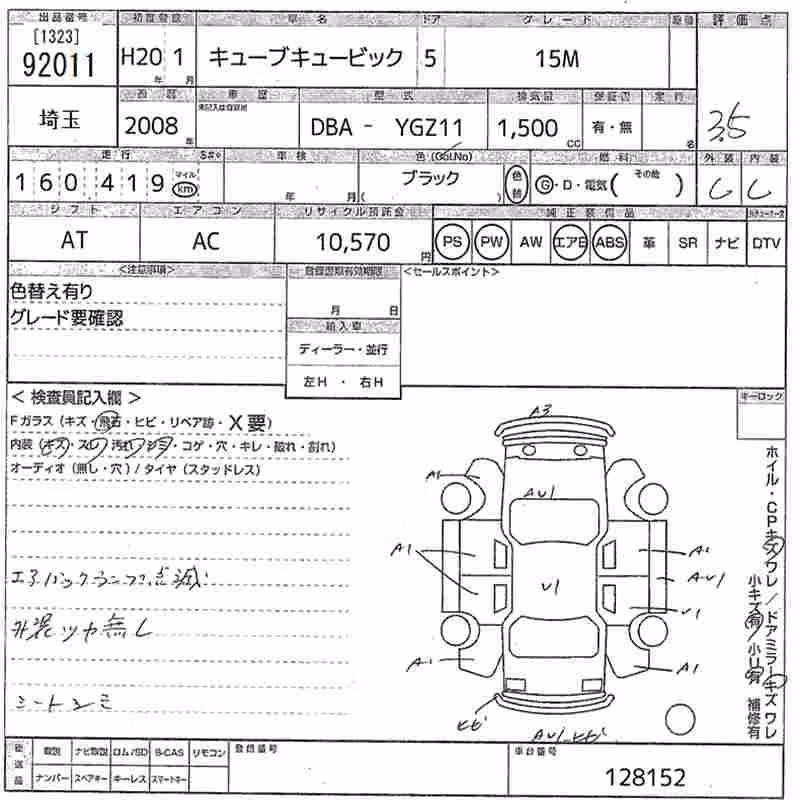 出品番号 初度登録 車名 ドア グレード 評価点
[1323]
92011 H20 1 キューブキュービック 5 15M
年 月
西暦 車歴 型式 排気量 保証書 定員
埼玉 2008 年 DBA - YGZ11 1,500 cc 有・無 名 3.5
走行 車検 色(Col.No) 燃料 外装 内装
160,419 マイル km 年 月 ブラック ( ) 色替 G・D・電気 (その他 ) C C
シフト エアコン リサイクル預託金 純正装備品
AT AC 10,570 円 PS PW AW エアB ABS 革 SR ナビ DTV
<注意事項> 登録図期有効期限 <セールスポイント>
色替え有り
グレード要確認
月 日
輸入車
ディーラー・並行
左H ・ 右H
< 検査員記入欄 > キーロック
Fガラス (キズ・飛石・ヒビ・リペア跡・X要)
内装 (キズ・スレ・汚れ・シミ・コゲ・穴・キレ・破れ・割れ)
オーディオ (無し・穴) / タイヤ (スタッドレス)
エアバックランプ点滅
外装ツヤ無し
シートシミ
A3
A1
AU1
A1 A1
U1 AU1
U1
A1 A1
ヒビ AU1 ヒビ
ホイル・CPキズワレ/ドアミラーキズワレ
小キズ有 小U有 補修有
欠送品 取説 ナビ取説 ロム/SD B-CAS リモコン 登録番号 車台番号
ナンバー スペアキー キーレス スマートキー 128152